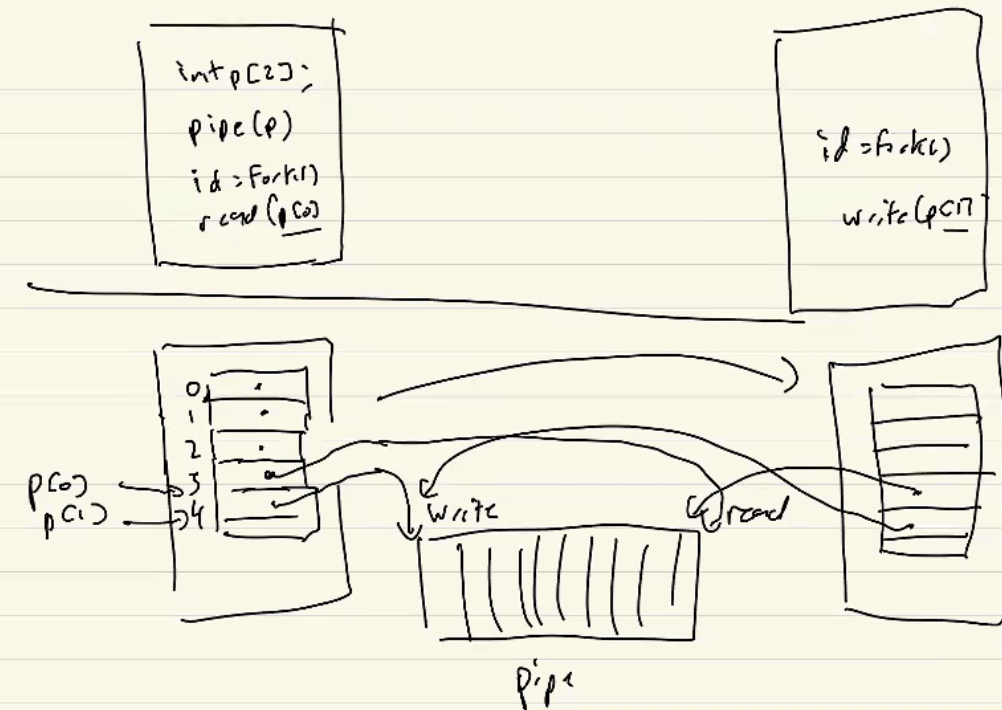 int p[2];
pipe(p)
id = fork()
read(p[0]
id = fork()
write(p[1]
0
1
2
3
4
p[0]
p[1]
write
read
pipe